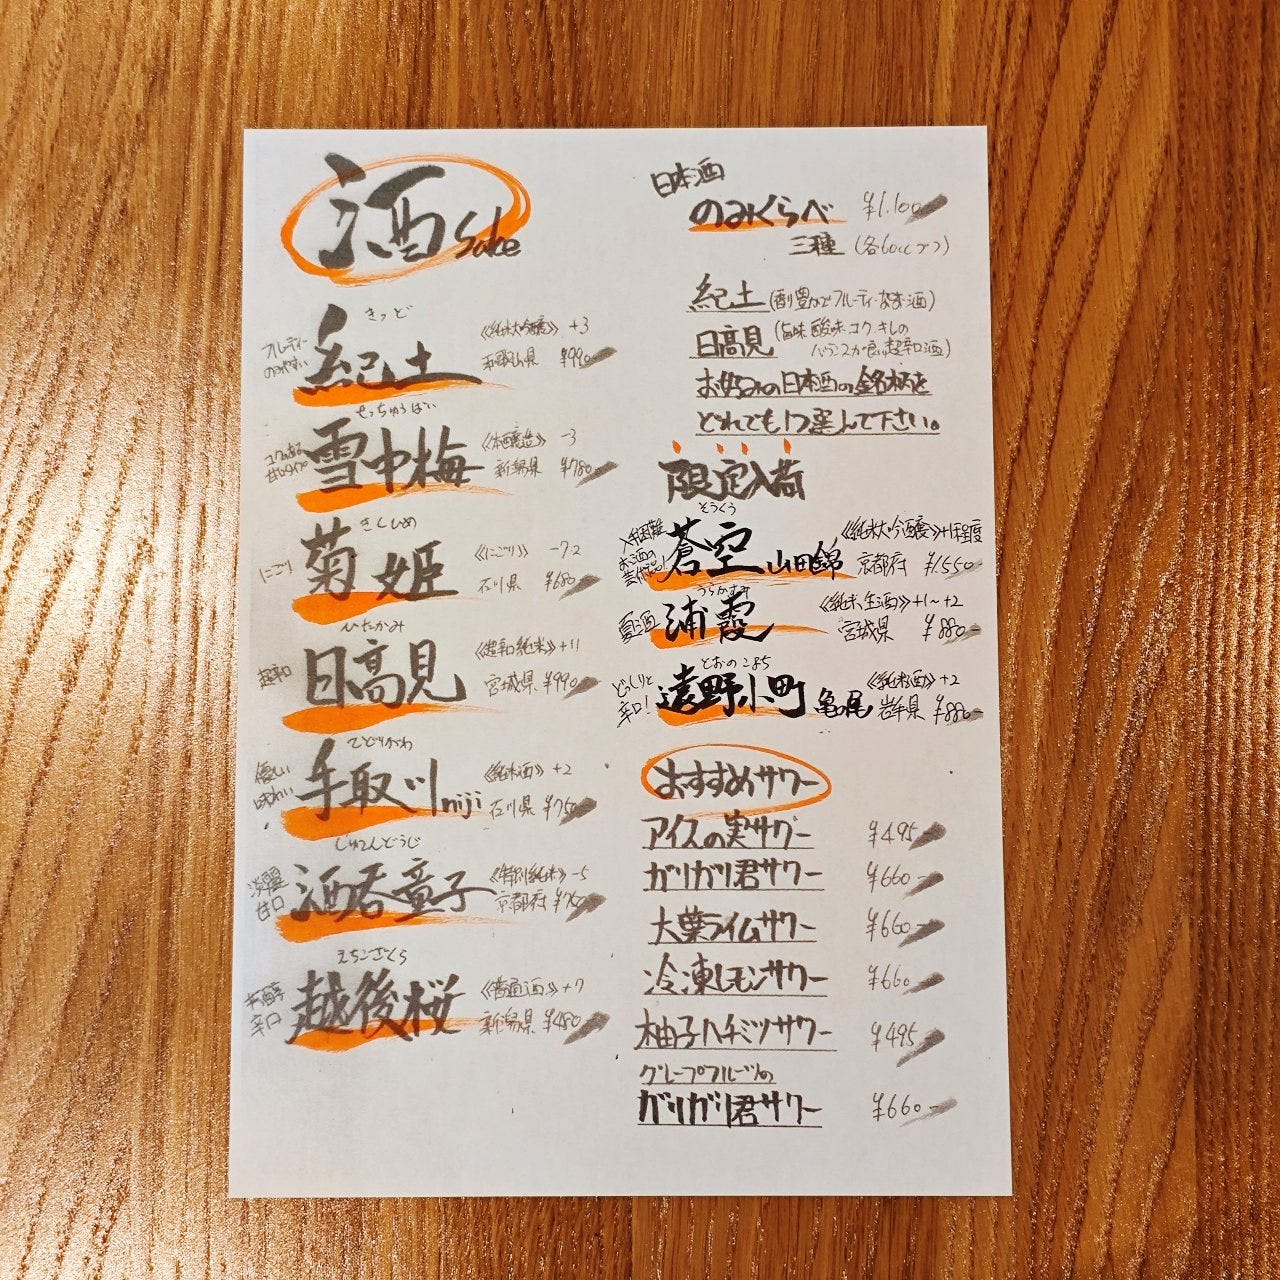 酒 Sake
きっど
フルーティー
のみやすい
紀土
《純米大吟醸》 +3
和歌山県 ¥990
せっちゅうばい
コクのある
甘口タイプ
雪中梅
《本醸造》 -3
新潟県 ¥780
きくひめ
にごり
菊姫
《にごり》 -72
石川県 ¥680
ひたかみ
超辛口
日高見
《超辛口純米》 +11
宮城県 ¥990
てどりがわ
優しい
味わい
手取川 niji
《純米酒》 +2
石川県 ¥750
しゅてんどうじ
淡麗
甘口
酒呑童子
《特別純米》 -5
京都府
えちござくら
芳醇
辛口
越後桜
《普通酒》 +7
新潟県 ¥480
日本酒
のみくらべ ¥1,100
三種 (各60ccずつ)
紀土 (香り豊かでフルーティーなお酒)
日高見 (旨味 酸味 コク、キレの
バランスが良い超辛口酒)
お好みの日本酒の銘柄を
どれでも1つ選んで下さい。
限定入荷
そうくう
入手困難
お酒の
芸術品!
蒼空 山田錦
《純米大吟醸》+1程度
京都府 ¥1550
うらかすみ
夏酒
浦霞
《純米生酒》+1〜+2
宮城県 ¥880
とおのこまち
どっしりと
辛口!
遠野小町 亀の尾
《純米酒》+2
岩手県 ¥880
おすすめサワー
アイスの実サワー ¥495
ガリガリ君サワー ¥660
大葉ライムサワー ¥660
冷凍レモンサワー ¥660
柚子ハチミツサワー ¥495
グレープフルーツの
ガリガリ君サワー ¥660